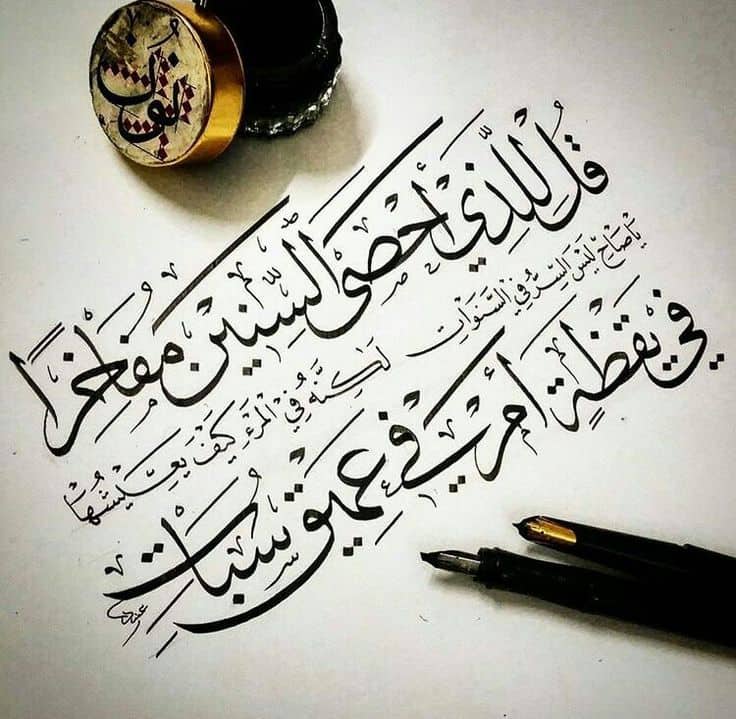 قُل لِلَّذِي أَحْصَى السِّنِينَ مُفَاخِرًا
يَا صَاحِ لَيْسَ السِّرُّ فِي السَّنَوَاتِ
لَكِنَّهُ فِي الْمَرْءِ كَيْفَ يَعِيشُهَا
فِي يَقْظَةٍ أَمْ فِي عَمِيقِ سُبَاتِ